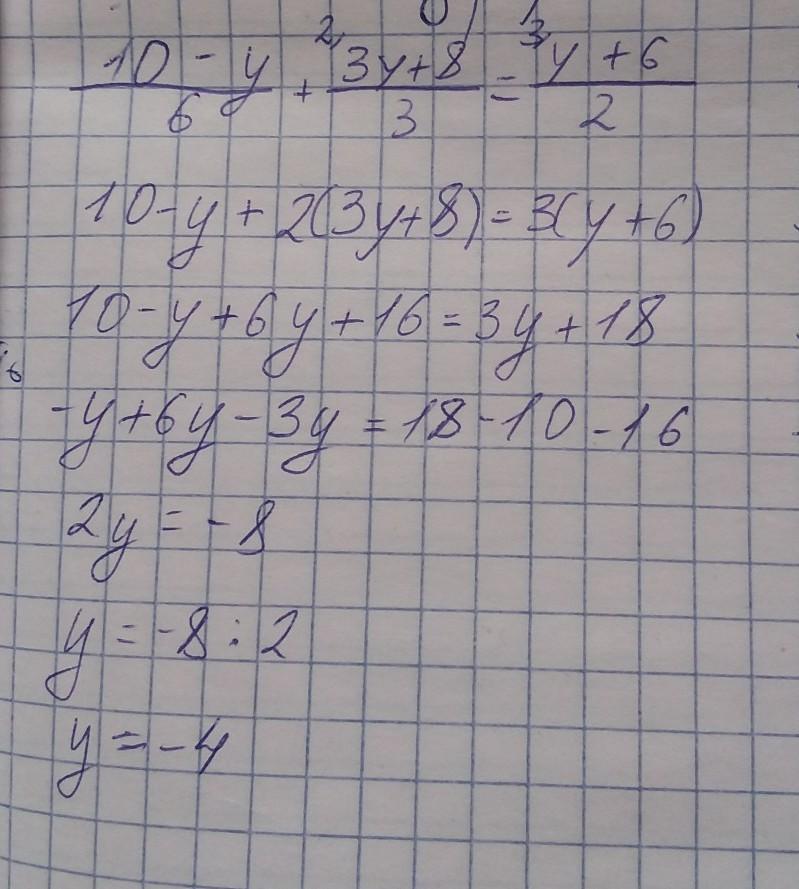 10 - y / 6 + 2) 3y+8 / 3 = 3) y + 6 / 2
10-y + 2(3y+8) = 3(y+6)
10-y+6y+16 = 3y+18
-y+6y-3y = 18-10-16
2y = -8
y = -8 : 2
y = -4